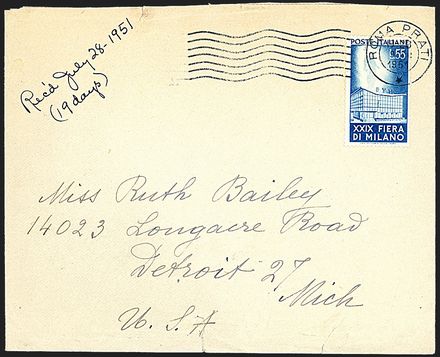 Rec'd July 28-1951
(19 days)
ROMA PRATI
POSTE ITALIANE
L.55
XXIX FIERA
DI MILANO
Miss Ruth Bailey
14023 Longacre Road
Detroit 27
Mich
U.S.A